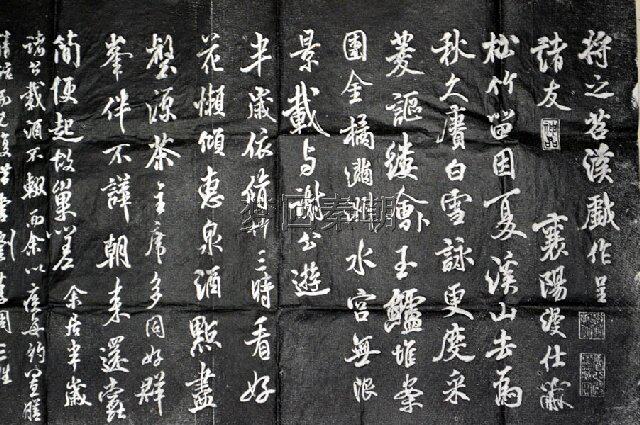 將之苕溪戲作呈
諸友 襄陽漫仕黻
松竹留因夏溪山去為
秋久賡白雪詠更度采
菱謳縷會玉鱸堆案
團金橘滿洲水宮無限
景載與謝公遊
半歲依脩竹三時看好
花懶傾惠泉酒點盡
壑源茶主席多同好群
峯伴不譁朝來還蠹
簡便起故巢嗟 余居半歲
諸公載酒不輟而余以疾每約置膳
清話而已復借書劉李周三姓
夢回秦朝